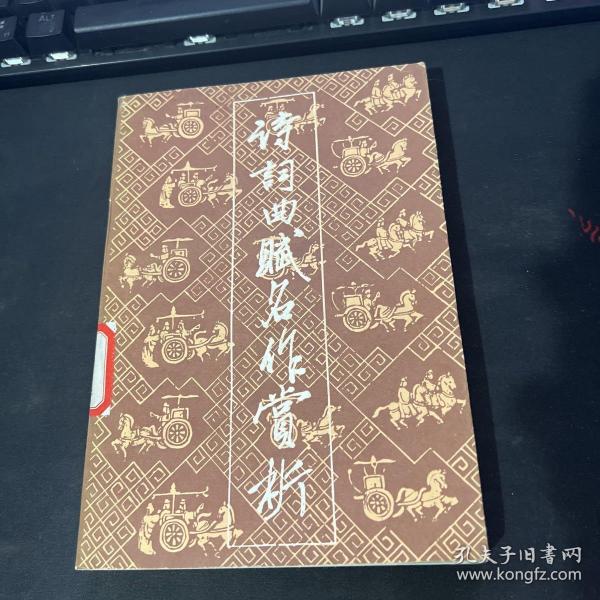 诗词曲赋名作赏析
孔夫子旧書网
www.kongfz.com
ALT